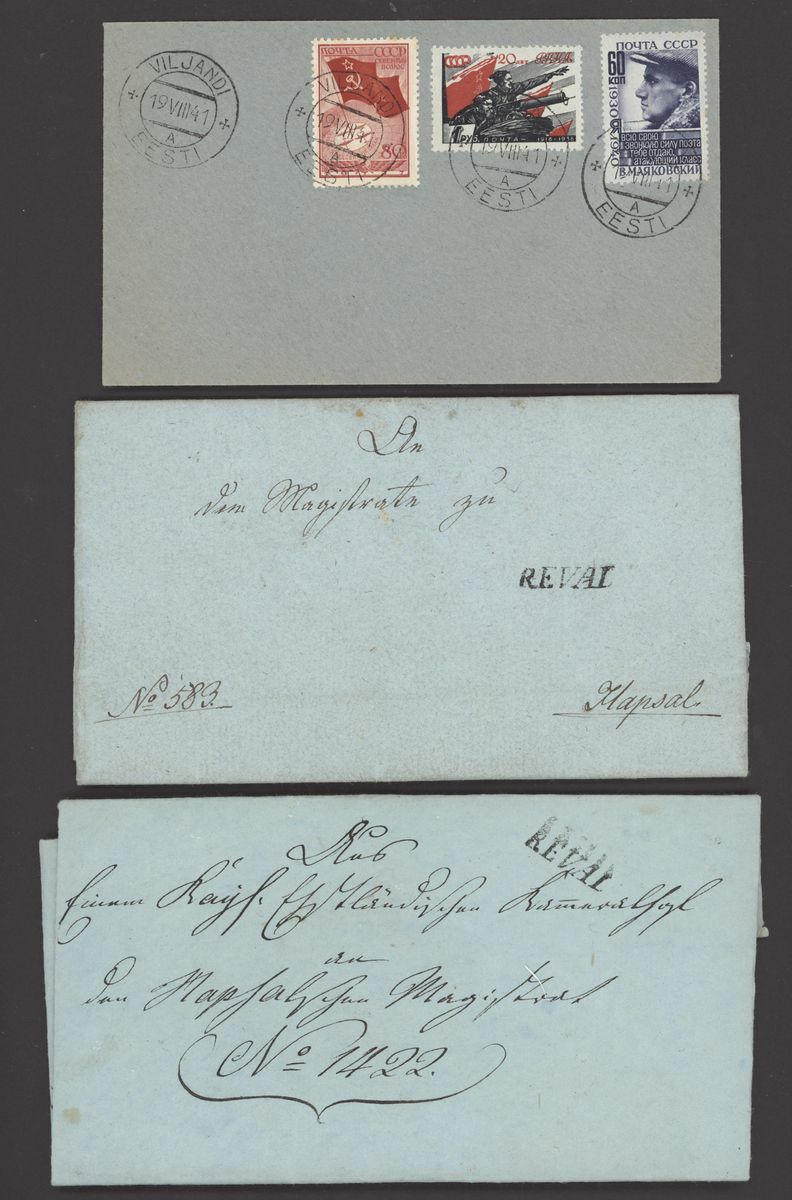 VILJANDI
19 VIII 41
A
EESTI
ПОЧТА СССР
СЕВЕРНЫЙ
ПОЛЮС
80
VILJANDI
19 VIII 41
A
EESTI
СССР 20 ЛЕТ РККА
1 РУБ. ПОЧТА 1918-1938
19 VIII 41
A
EESTI
ПОЧТА СССР
60
КОП
1930
1940
ВСЮ СВОЮ
ЗВОНКУЮ СИЛУ ПОЭТА
ТЕБЕ ОТДАЮ,
АТАКУЮЩИЙ КЛАСС
В. МАЯКОВСКИЙ
VIII 41
A
EESTI
An
dem Magistrate zu
REVAL
No 583.
Hapsal.
REVAL
Aus
Einem Kays. Ehstländischen Kameralhof
an
den Hapsalschen Magistrat
No 1422.